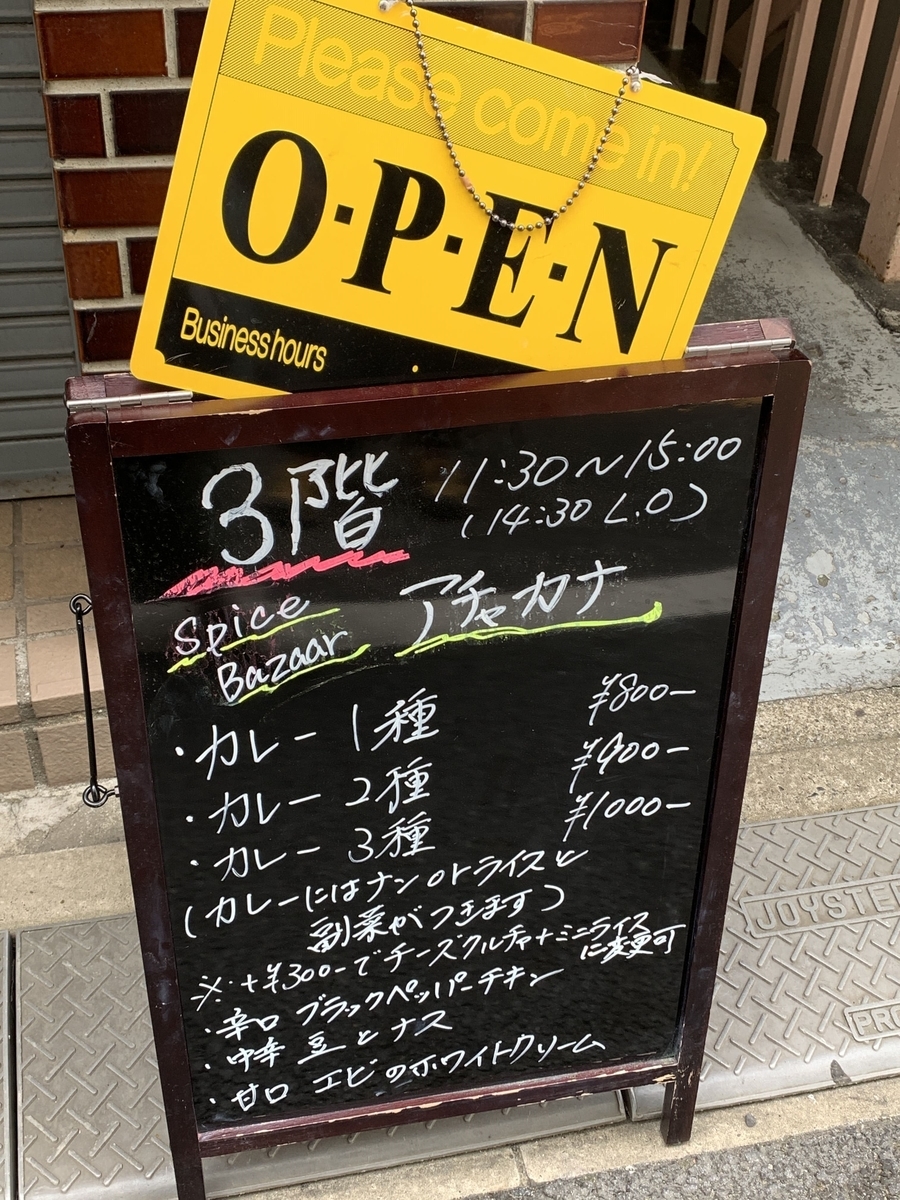 Please come in!
O·P·E·N
Business hours
3階 11:30〜15:00
(14:30 L.O)
Spice
Bazaar アチャカナ
・カレー 1種 ¥800-
・カレー 2種 ¥900-
・カレー 3種 ¥1000-
(カレーにはナンorライスと
副菜がつきます)
※+¥300-でチーズクルチャ+ミニライス
に変更可
・辛口 ブラックペッパーチキン
・中辛 豆とナス
・甘口 エビのホワイトクリーム
JOYSTE
PRO